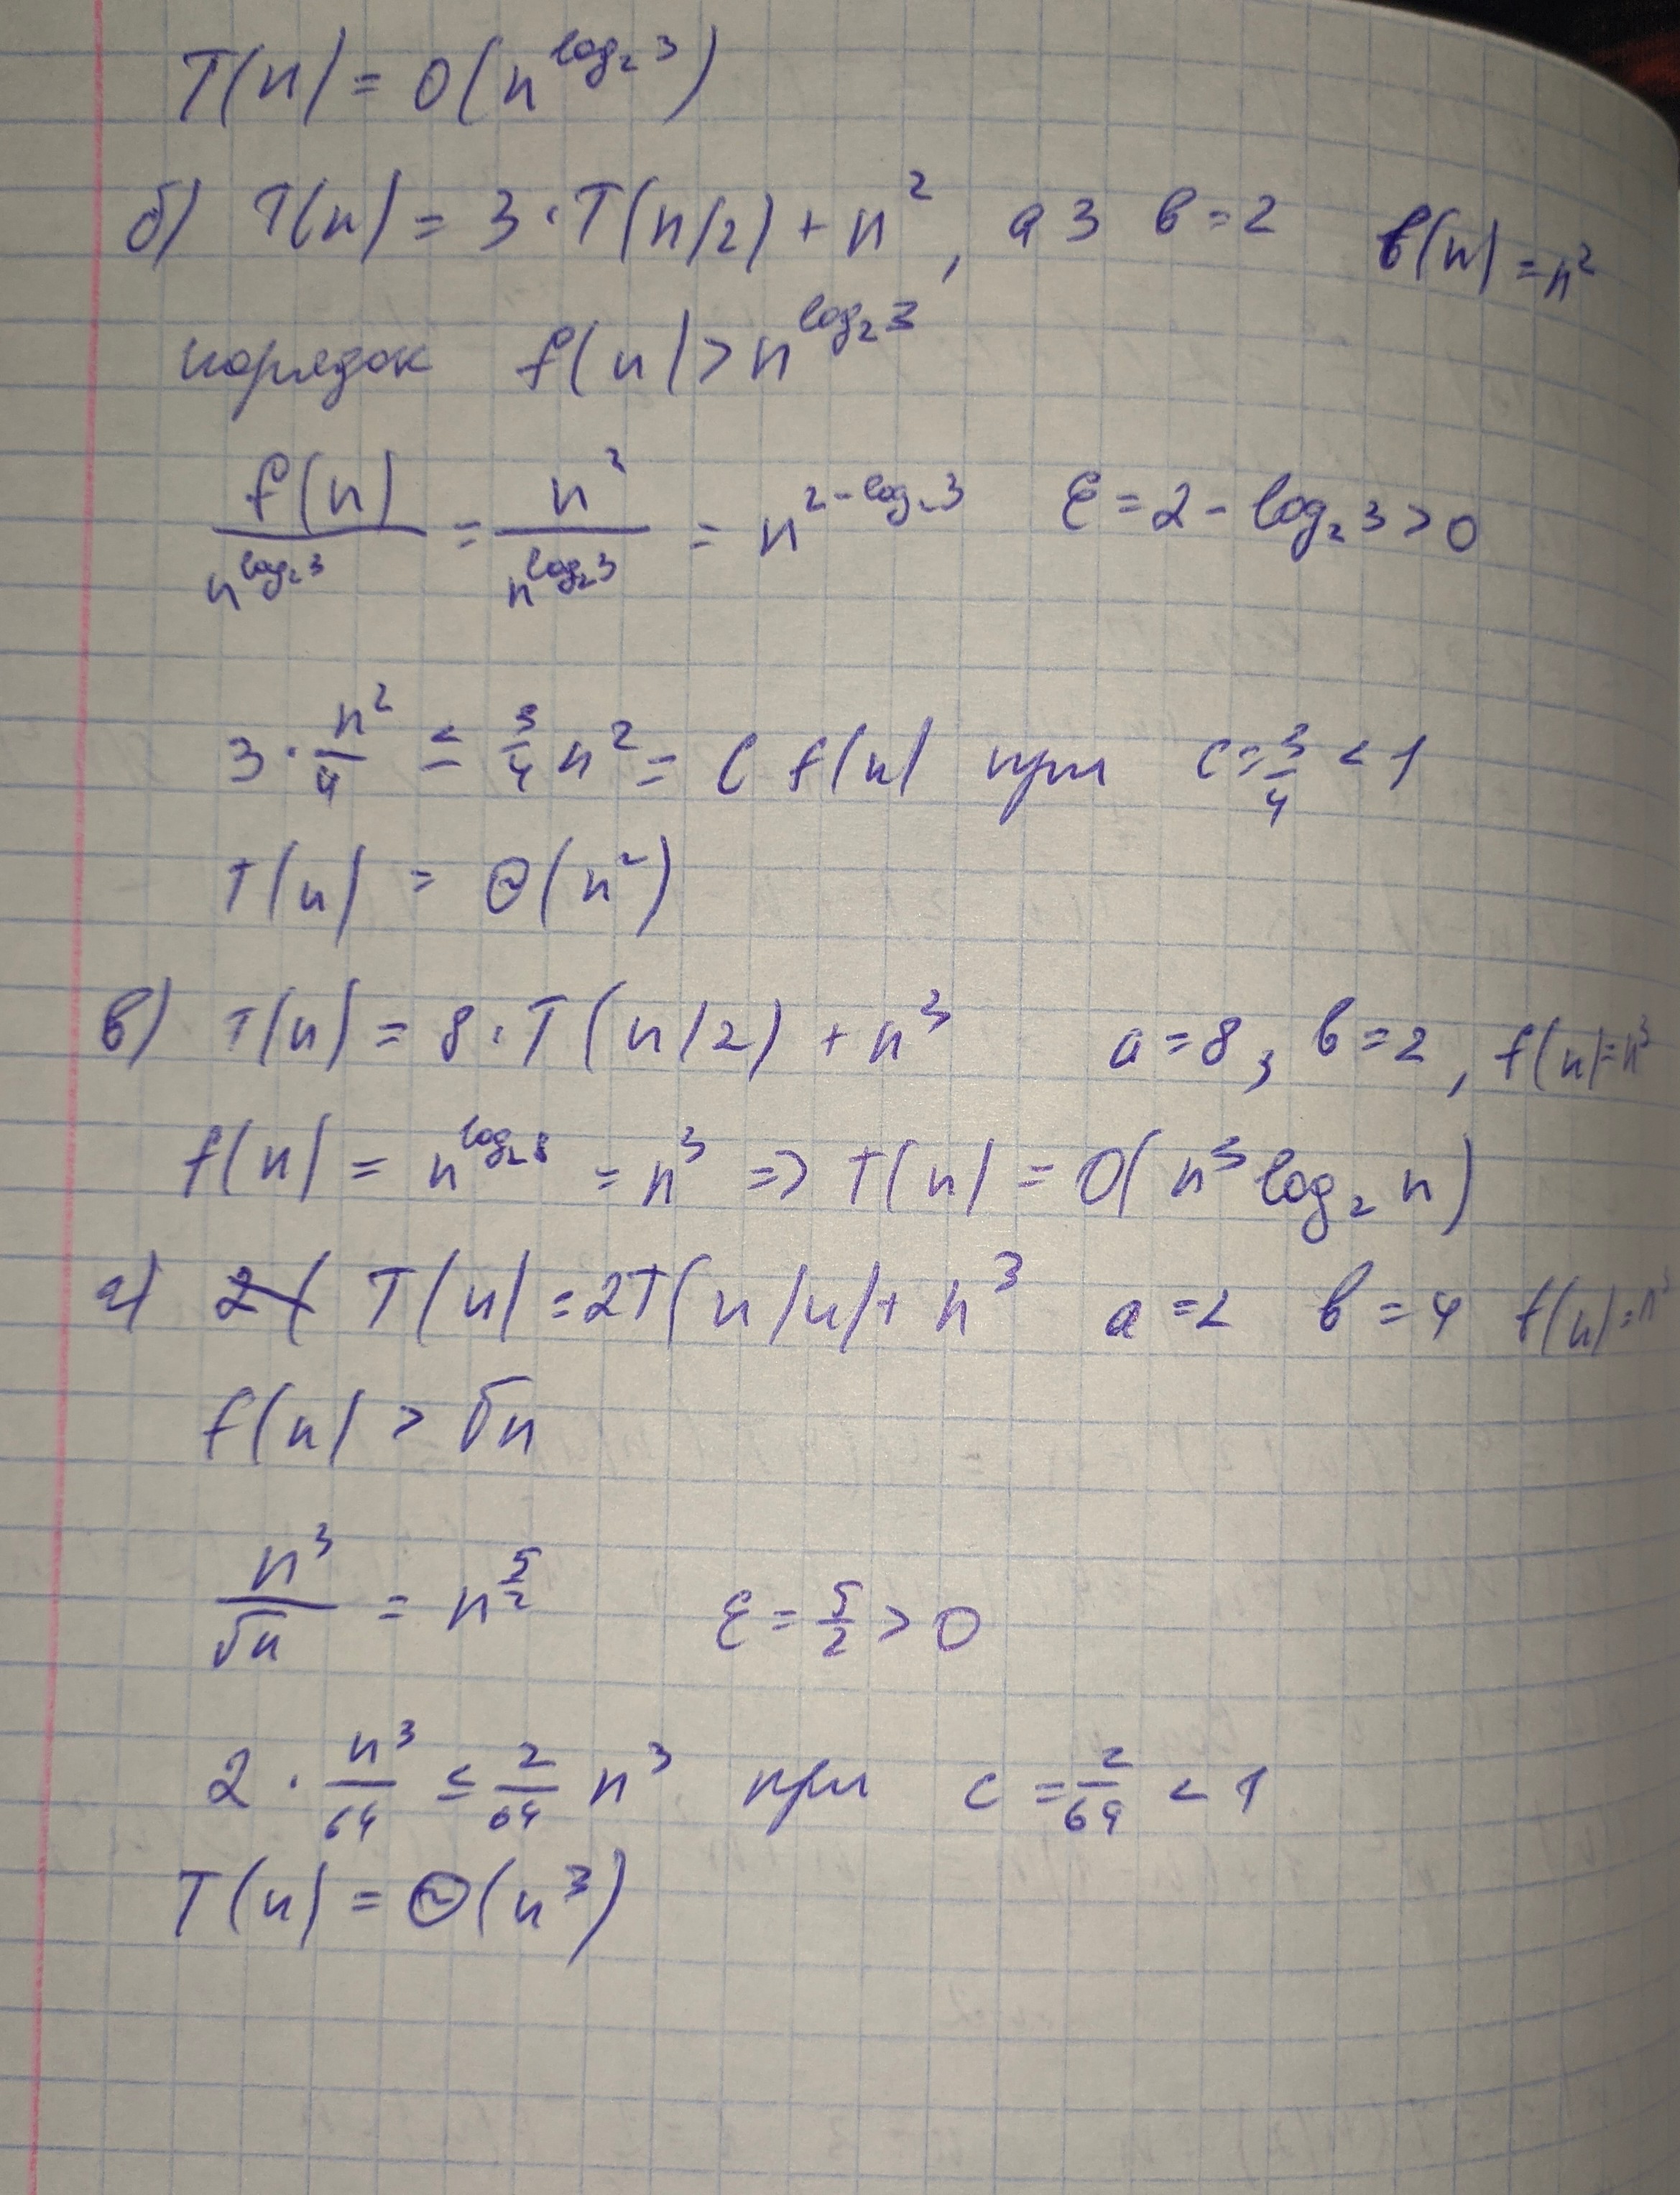 T(n) = O(n^{log_2 3})
б) T(n) = 3·T(n/2) + n^2, a 3 b = 2 f(n) = n^2
порядок f(n) > n^{log_2 3}
f(n)/n^{log_2 3} = n^2/n^{log_2 3} = n^{2 - log_2 3} ε = 2 - log_2 3 > 0
3 · n^2/4 ≤ 3/4 n^2 = c f(n) при c = 3/4 < 1
T(n) = Θ(n^2)
в) T(n) = 8·T(n/2) + n^3 a = 8, b = 2, f(n) = n^3
f(n) = n^{log_2 8} = n^3 => T(n) = O(n^3 log_2 n)
г) T(n) = 2T(n/4) + n^3 a = 2 b = 4 f(n) = n^3
f(n) > √n
n^3/√n = n^{5/2} ε = 5/2 > 0
2 · n^3/64 ≤ 2/64 n^3 при c = 2/64 < 1
T(n) = Θ(n^3)